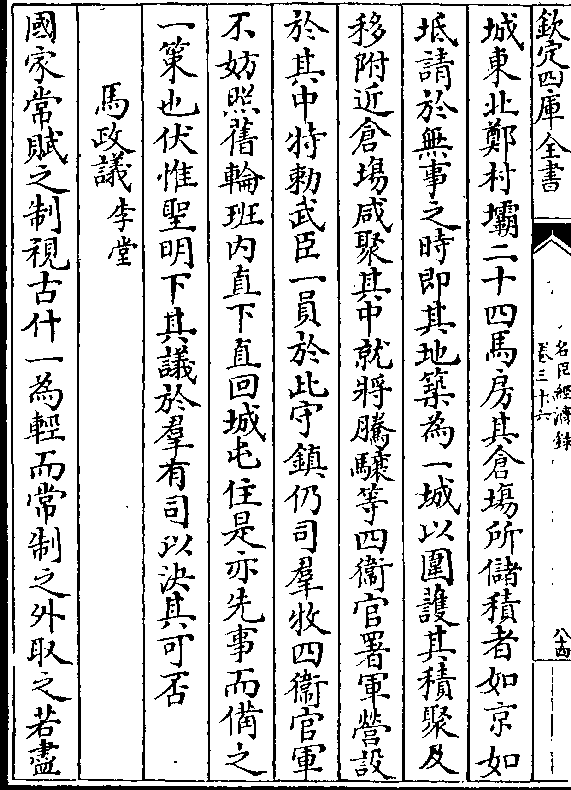 欽定四庫全書
名臣經濟錄
卷三十六
城東北鄭村壩二十四馬房其倉塲所儲積者如京如
坻請於無事之時即其地築為一城以圍護其積聚及
移附近倉塲咸聚其中就將騰驤等四衞官署軍營設
於其中特勅武臣一員於此守鎮仍司羣牧四衞官軍
不妨照舊輪班内直下直回城屯住是亦先事而備之
一策也伏惟聖明下其議於羣有司以決其可否
馬政議 李堂
國家常賦之制視古什一為輕而常制之外取之若盡